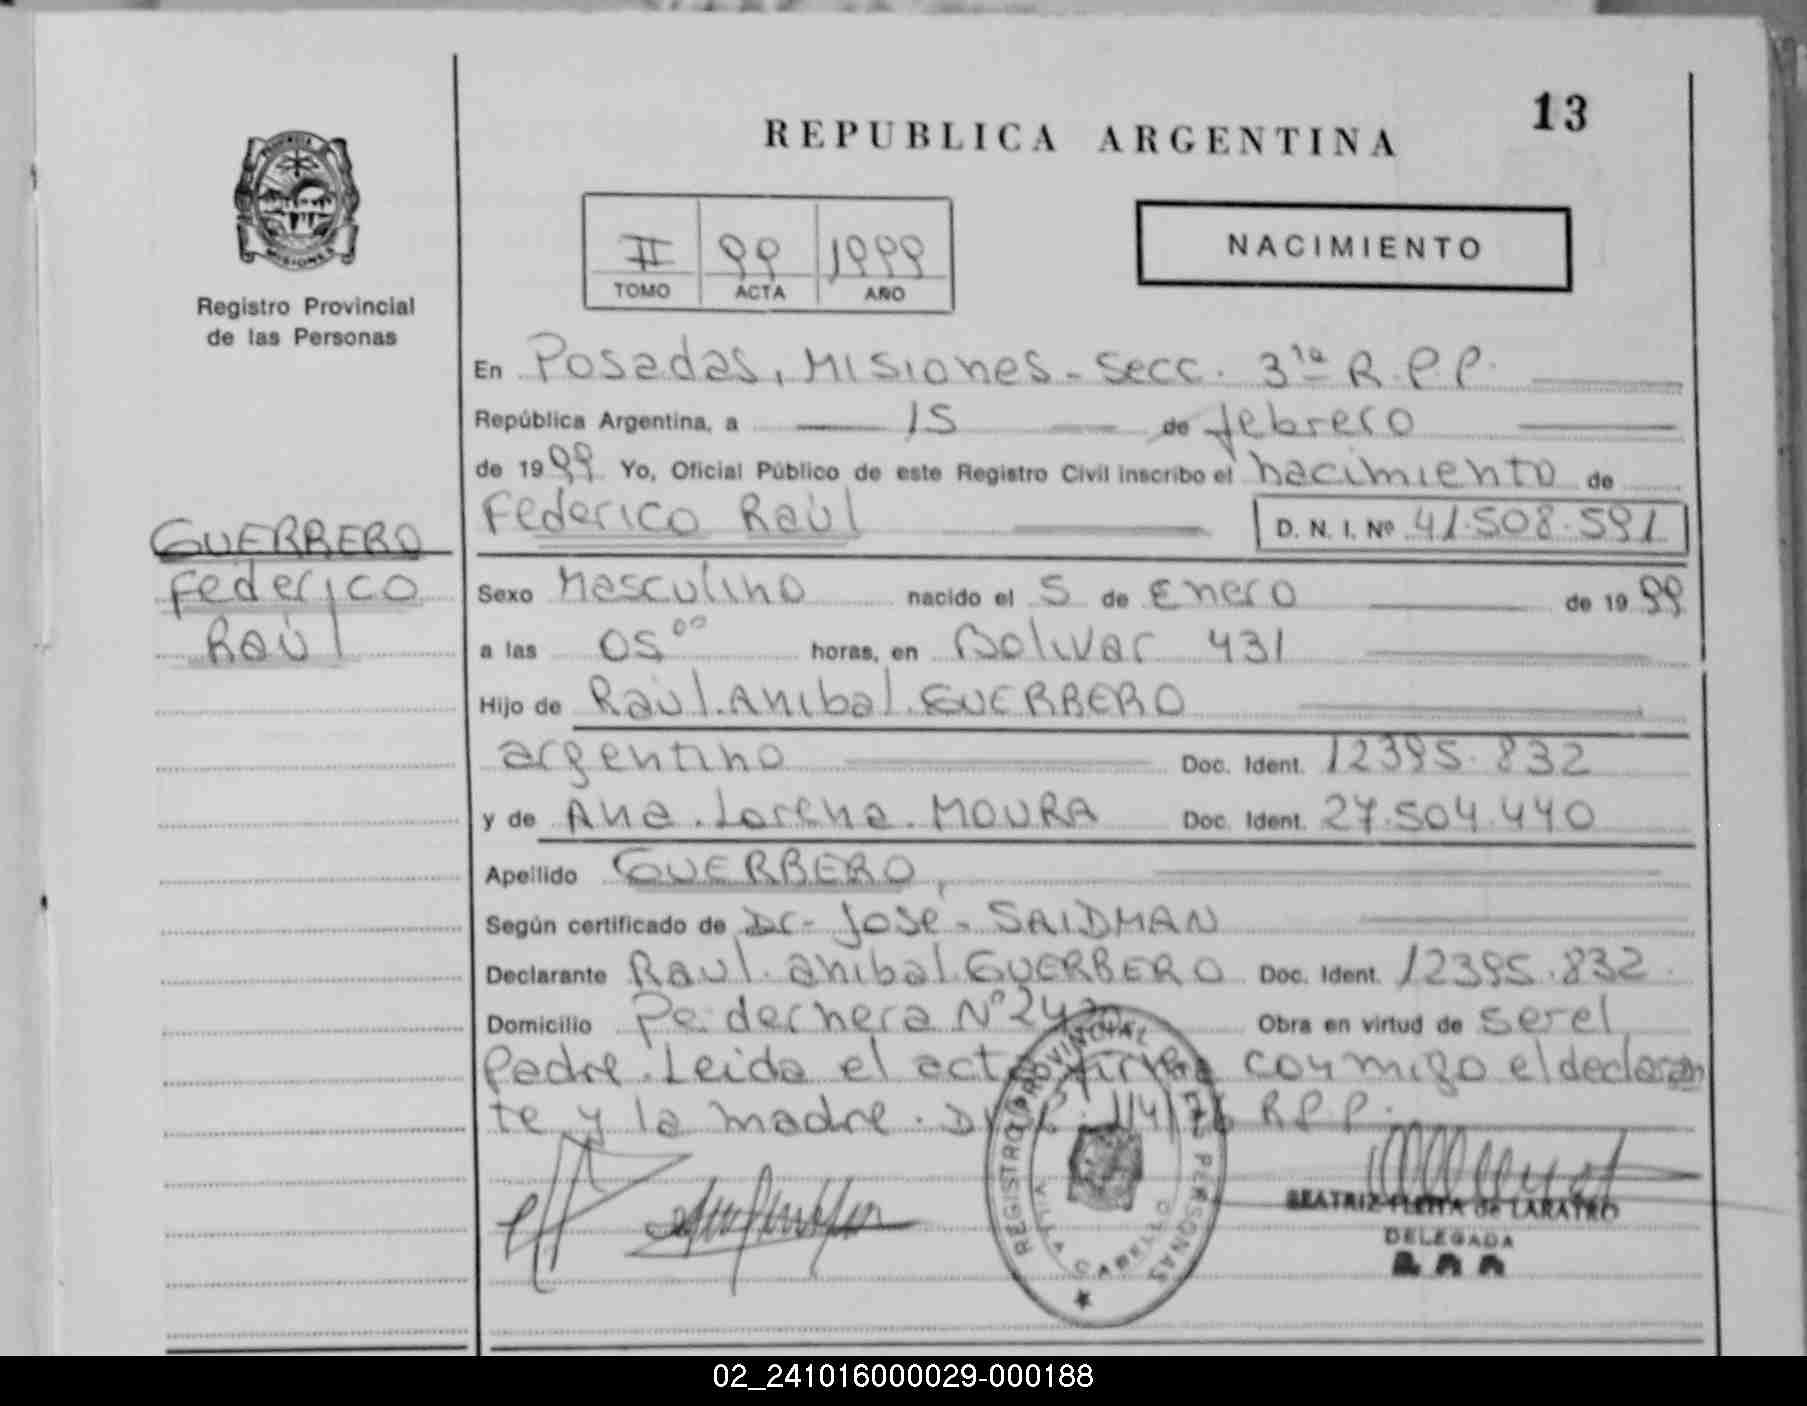 REPUBLICA ARGENTINA
13
Registro Provincial
de las Personas
II 99 1999
TOMO ACTA AÑO
NACIMIENTO
En Posadas, Misiones - Secc. 3ra R.P.P.
República Argentina, a 15 de febrero
de 1999 Yo, Oficial Público de este Registro Civil inscribo el nacimiento de
Federico Raúl D. N. I. Nº 41.508.591
GUERRERO
Federico
Raúl
Sexo Masculino nacido el 5 de Enero de 1999
a las 05⁰⁰ horas, en Bolivar 431
Hijo de Raúl. Anibal. GUERRERO
argentino Doc. Ident. 12395.832
y de Ana. Lorena. MOURA Doc. Ident. 27.504.440
Apellido GUERRERO,
Según certificado de Dr - José - SAIDMAN
Declarante Raul. anibal. GUERRERO Doc. Ident. 12395.832.
Domicilio Nº Obra en virtud de ser el
Padre. Leida el acta firma conmigo el declaran
te y la madre. R.P.P.
REGISTRO PROVINCIAL DE LAS PERSONAS
VILLA CABELLO
MISIONES
BEATRIZ de LARATRO
DELEGADA
02_241016000029-000188